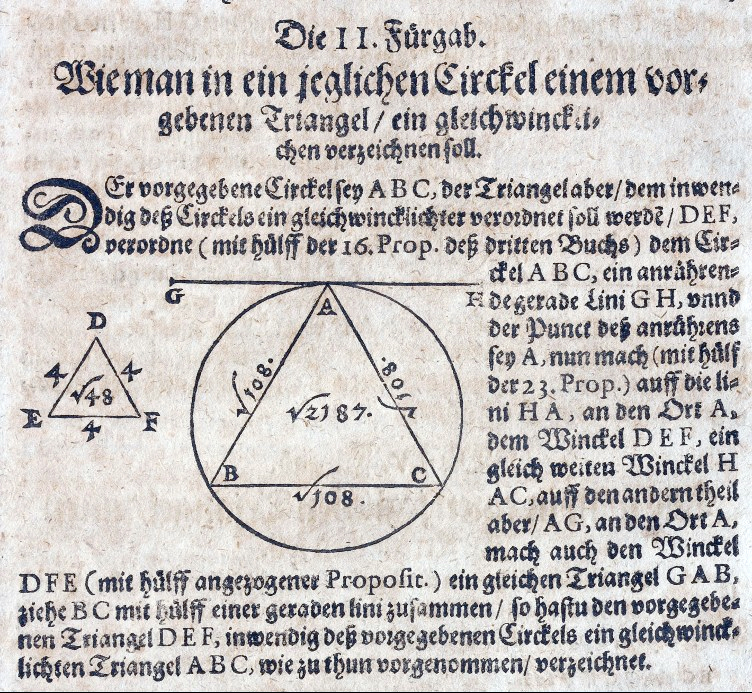 Die II. Fürgab.
Wie man in ein jeglichen Circkel einem vor-
gebenen Triangel / ein gleichwinckli-
chen verzeichnen soll.
DEr vorgegebene Circkel sey A B C, der Triangel aber / dem inwen-
dig deß Circkels ein gleichwincklichter verordnet soll werdẽ / D E F,
verordne ( mit hülff der 16. Prop. deß dritten Buchs ) dem Cir-
ckel A B C, ein anrühren-
de gerade Lini G H, vnnd
der Punct deß anrührens
sey A, nun mach (mit hülf
der 23. Prop.) auff die li-
ni H A, an den Ort A,
dem Winckel D E F, ein
gleich weiten Winckel H
A C, auff den andern theil
aber / A G, an den Ort A,
mach auch den Winckel
D F E (mit hülff angezogener Proposit.) ein gleichen Triangel G A B,
ziehe B C mit hülff einer geraden lini zusammen / so hastu den vorgegebe-
nen Triangel D E F, inwendig deß vorgegebenen Circkels ein gleichwinck-
lichten Triangel A B C, wie zu thun vorgenommen / verzeichnet.
G
H
A
D
4
4
√48
E
4
F
√108.
√108.
√2187.
B
C
√108.